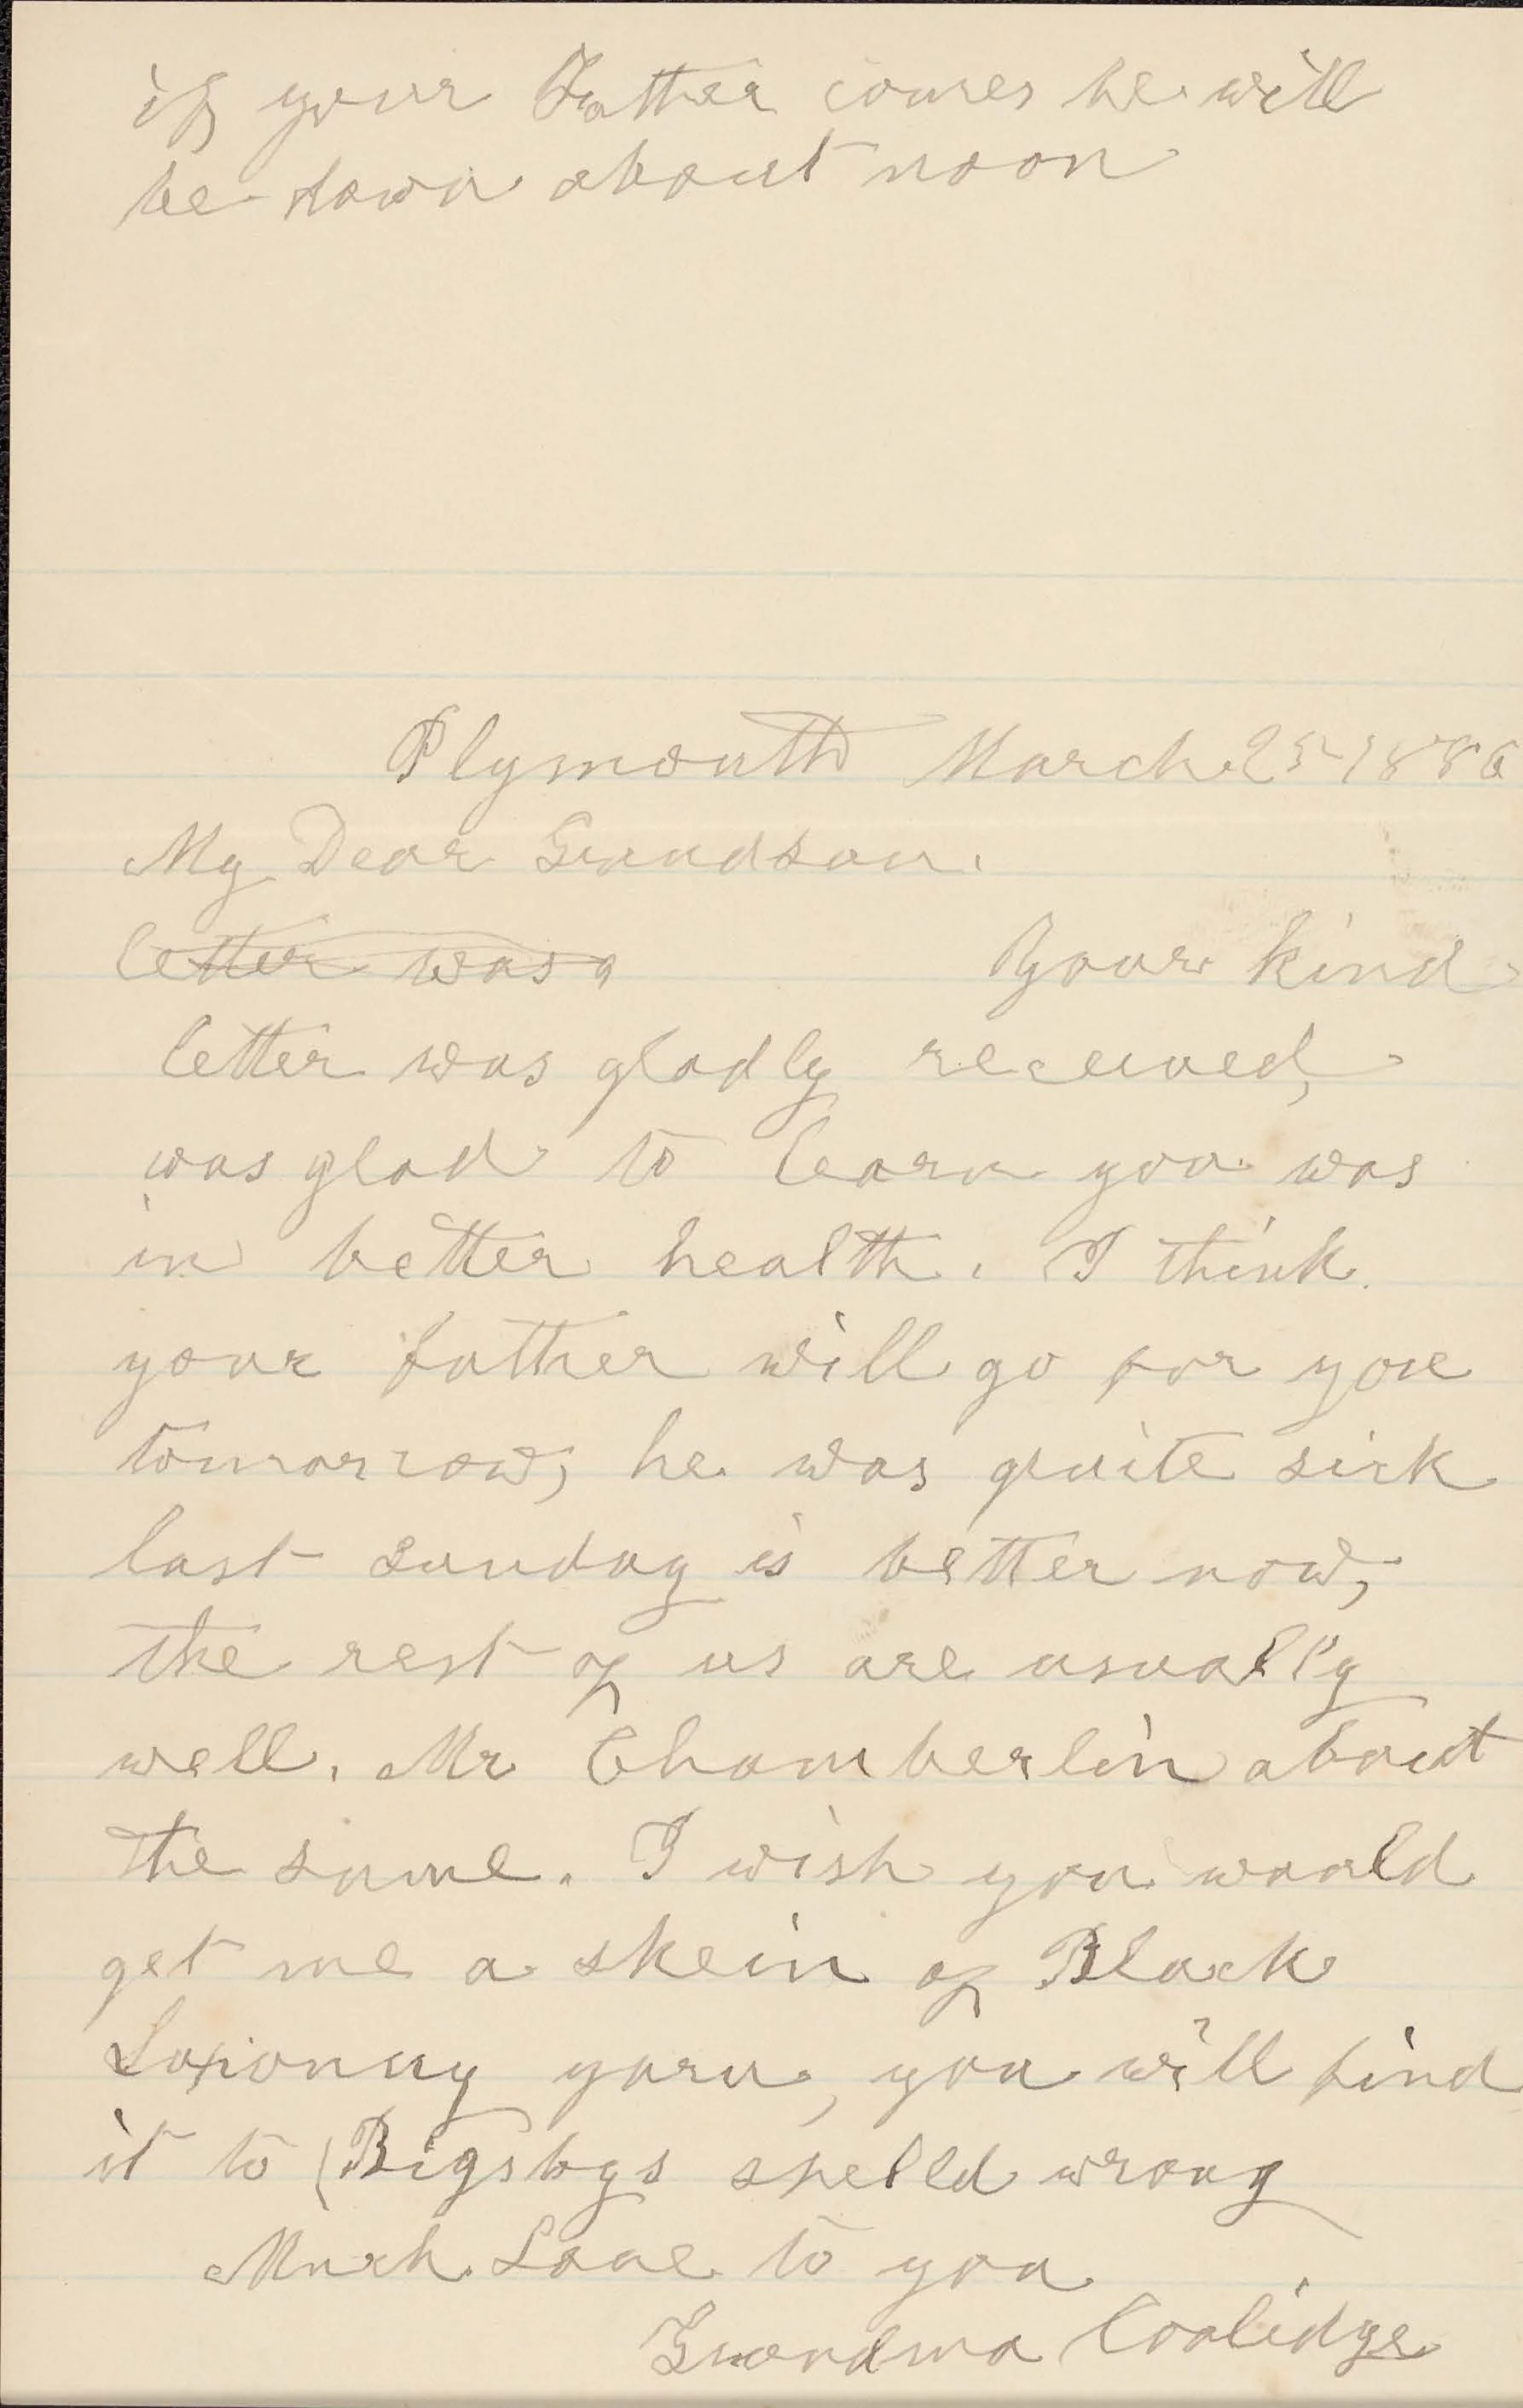 if your Father comes he will
be down about noon
Plymouth March 25 1886
My Dear Grandson.
letter was
Your kind
letter was gladly received,
was glad to learn you was
in better health. I think
your father will go for you
tomorrow, he was quite sick
last sunday is better now,
the rest of us are usually
well. Mr Chamberlin about
the same. I wish you would
get me a skein of Black
Saxonny yarn, you will find
it to (Bigsbys spelld wrong
Much Love to you
Grandma Coolidge